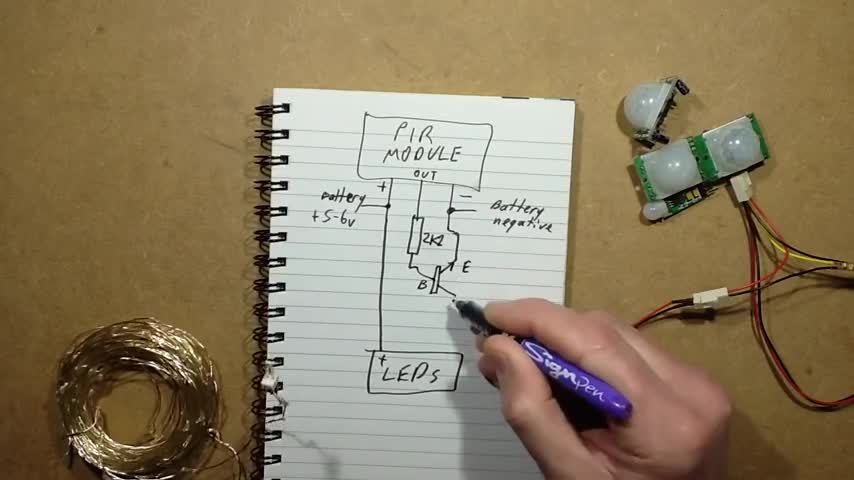 PIR
MODULE
OUT
+
–
Battery
+5-6v
Battery
negative
2K2
E
B
+
LEDs
Sign Pen